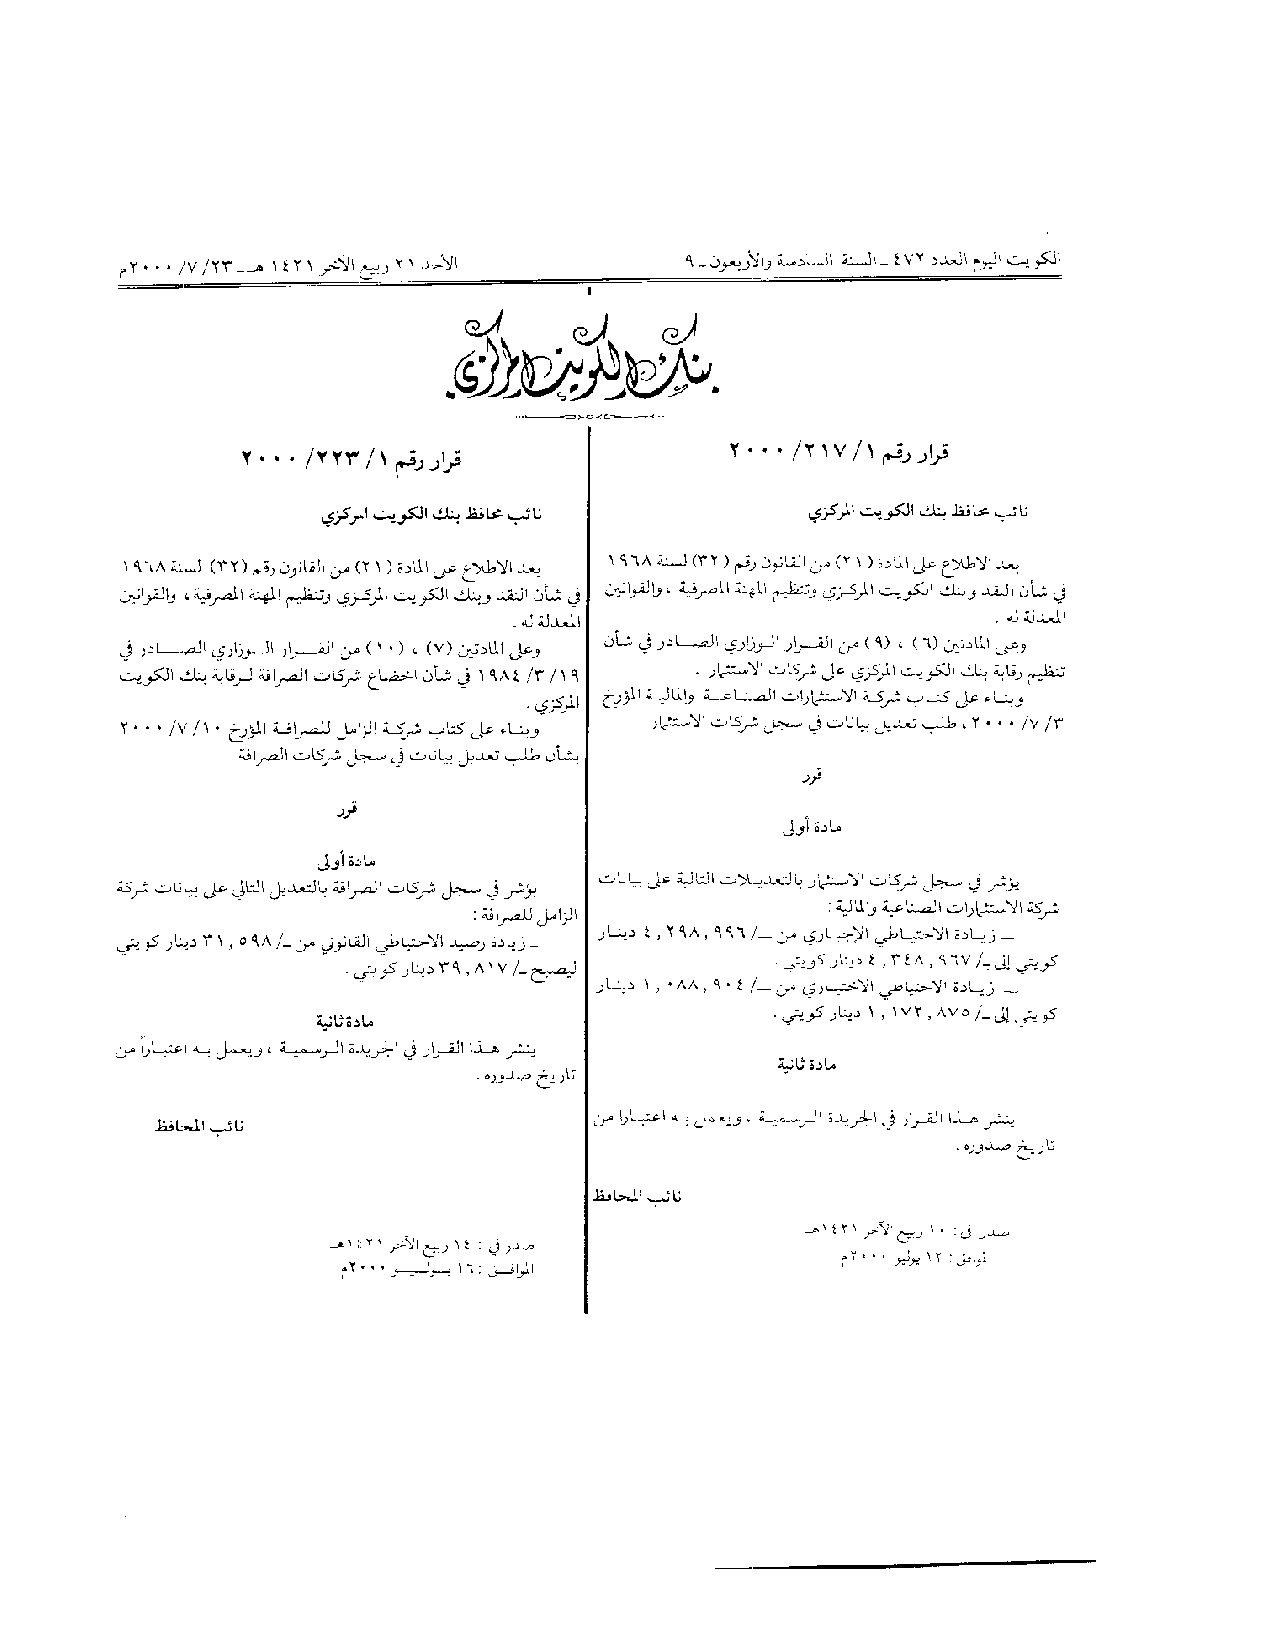 الكويت اليوم العدد ٤٧٢ ــ السنة السادسة والأربعون ــ ٩
الأحد ٢١ ربيع الآخر ١٤٢١ هـ ــ ٢٣/ ٧/ ٢٠٠٠م
بنك الكويت المركزي
قرار رقم ١/ ٢١٧/ ٢٠٠٠
نائب محافظ بنك الكويت المركزي
بعد الاطلاع على المادة (٢١) من القانون رقم (٣٢) لسنة ١٩٦٨
في شأن النقد وبنك الكويت المركزي وتنظيم المهنة المصرفية ، والقوانين
المعدلة له .
وعلى المادتين (٦) ، (٩) من القرار الوزاري الصادر في شأن
تنظيم رقابة بنك الكويت المركزي على شركات الاستثمار .
وبناء على كتاب شركة الاستشارات الصناعية والمالية المؤرخ
٣/ ٧/ ٢٠٠٠ ، طلب تعديل بيانات في سجل شركات الاستثمار
قرر
مادة أولى
يؤشر في سجل شركات الاستثمار بالتعديلات التالية على بيانات
شركة الاستشارات الصناعية والمالية :
ــ زيادة الاحتياطي الإجباري من ــ/ ٤,٢٩٨,٩٩٦ دينار
كويتي إلى ــ/ ٤,٣٤٨,٩٦٧ دينار كويتي .
ــ زيادة الاحتياطي الاختياري من ــ/ ١,٠٨٨,٩٠٤ دينار
كويتي إلى ــ/ ١,١٧٢,٨٧٥ دينار كويتي .
مادة ثانية
ينشر هذا القرار في الجريدة الرسمية ، ويعمل به اعتبارا من
تاريخ صدوره .
نائب المحافظ
صدر في : ١٠ ربيع الآخر ١٤٢١هـ
الموافق : ١٢ يوليو ٢٠٠٠م
قرار رقم ١/ ٢٢٣/ ٢٠٠٠
نائب محافظ بنك الكويت المركزي
بعد الاطلاع على المادة (٢١) من القانون رقم (٣٢) لسنة ١٩٦٨
في شأن النقد وبنك الكويت المركزي وتنظيم المهنة المصرفية ، والقوانين
المعدلة له .
وعلى المادتين (٧) ، (١٠) من القرار الوزاري الصادر في
١٩/ ٣/ ١٩٨٤ في شأن اخضاع شركات الصرافة لرقابة بنك الكويت
المركزي .
وبناء على كتاب شركة الزامل للصرافة المؤرخ ١٠/ ٧/ ٢٠٠٠
بشأن طلب تعديل بيانات في سجل شركات الصرافة
قرر
مادة أولى
يؤشر في سجل شركات الصرافة بالتعديل التالي على بيانات شركة
الزامل للصرافة :
ــ زيادة رصيد الاحتياطي القانوني من ــ/ ٣١,٥٩٨ دينار كويتي
ليصبح ــ/ ٣٩,٨١٧ دينار كويتي .
مادة ثانية
ينشر هذا القرار في الجريدة الرسمية ، ويعمل به اعتباراً من
تاريخ صدوره .
نائب المحافظ
صدر في : ١٤ ربيع الآخر ١٤٢١هـ
الموافق : ١٦ يوليو ٢٠٠٠م